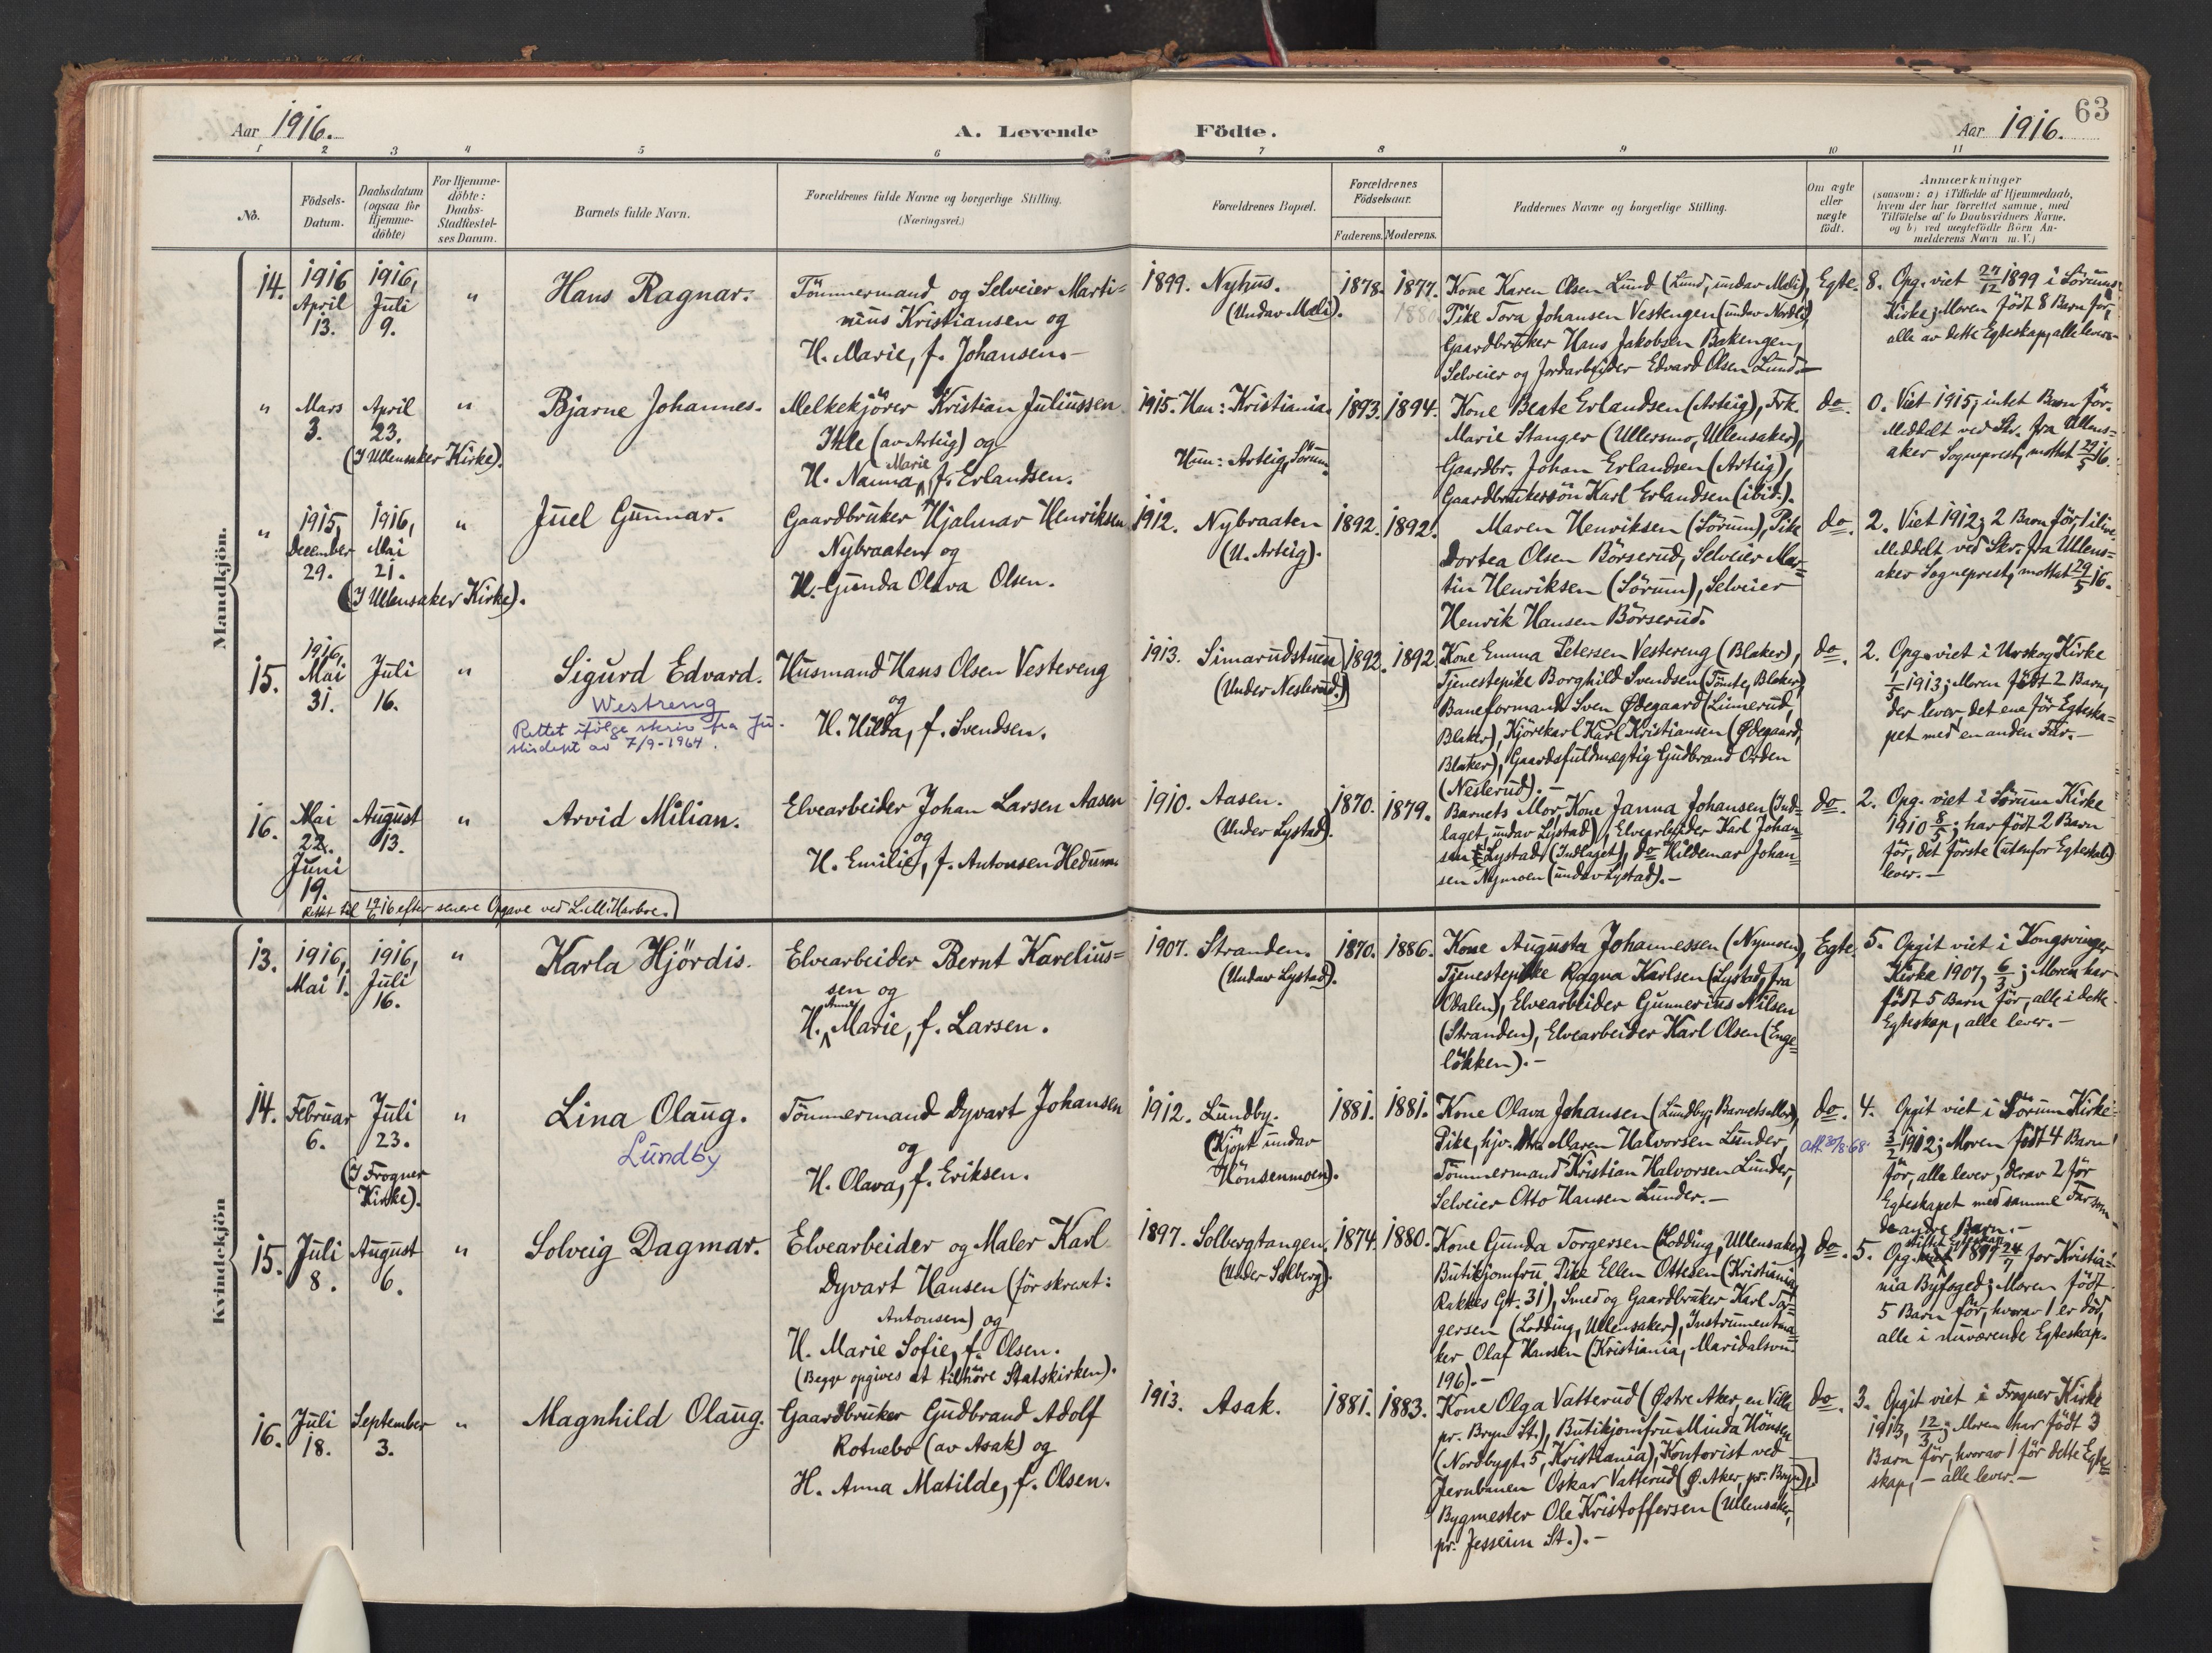 63
Aar 1916.
A. Levende
Födte.
Aar 1916.
1 2 3 4 5 6 7 8 9 10 11
No.
Födsels-
Datum.
Daabsdatum
(ogsaa for
Hjemme-
döbte)
For Hjemme-
döbte:
Daabs-
Stadfæstel-
ses Datum.
Barnets fulde Navn.
Forældrenes fulde Navne og borgerlige Stilling.
(Næringsvei.)
Forældrenes Bopæl.
Forældrenes
Födselsaar.
Faderens. Moderens.
Faddernes Navne og borgerlige Stilling.
Om ægte
eller
uægte
födt.
Anmærkninger
(saasom: a) i Tilfælde af Hjemmedaab,
hvem der har forrettet samme, med
Tilföielse af to Daabsvidners Navne,
og b) ved uægtefödte Börn An-
melderens Navn m. V.)
Mandkjön.
14.
1916
April
13.
1916,
Juli
9.
"
Hans Ragnar.
Tömmermand og Selveier Marti=
nius Kristiansen og
H. Marie, f. Johansen.-
1899. Nyhus.
(Undav Mæli).
1878. 1877.
Kone Karen Olsen Lund (Lund, undav Mæli),
Pike Tora Johansen Vestengen (undav Nordli),
Gaardbruker Hans Jakobsen Bakengen,
Selveier og Jordarbeider Edvard Olsen Lund.-
Egte.
8. Opg. viet 27/12 1899 i Sörums
Kirke; Moren födt 8 Barn för,
alle av dette Egteskap, alle lever.-
"
Mars
3.
April
23.
(I Ullensaker Kirke).
"
Bjarne Johannes.
Melkekjörer Kristian Juliussen
Ihle (av Arteig) og
H. Nanna Marie, f. Erlandsen.
1915. Han: Kristiania.
Hun: Arteig, Sörum.
1893. 1894.
Kone Beate Erlandsen (Arteig), Frk.
Marie Stanger (Ullersmo, Ullensaker),
Gaardbr. Johan Erlandsen (Arteig),
Gaardbrukersön Karl Erlandsen (ibid.).
do.
0. Viet 1915; intet Barn för.
Meddelt ved Skr. fra Ullens=
aker Sogneprest, mottat 29/5 16.
"
1915,
December
29.
1916,
Mai
21.
(I Ullensaker Kirke).
"
Juel Gunnar.
Gaardbruker Hjalmar Henriksen
Nybraaten og
H. Gunda Olava Olsen.
1912. Nybraaten
(U. Arteig).
1892. 1892.
Maren Henriksen (Sörum), Pike
Dortea Olsen Börserud, Selveier Mar=
tin Henriksen (Sörum), Selveier
Henrik Hansen Börserud.
do.
2. Viet 1912; 2 Barn för, 1 ilive.
Meddelt ved Skr. fra Ullens=
aker Sogneprest, mottat 29/5 16.
15.
1916,
Mai
31.
Juli
16.
"
Sigurd Edvard.
Westreng
Rettet ifølge skriv fra Ju-
stisdept av 7/9-1964.
Husmand Hans Olsen Vestereng
og
H. Hilda, f. Svendsen.
1913. Simarudstuen
(Under Neslerud.)
1892. 1892
Kone Emma Petersen Vestereng (Blaker),
Tjenestepike Borghild Svendsen (Tömte, Blaker),
Baneformand Sven Ødegaard (Linnerud,
Blaker), Kjörekarl Karl Kristiansen (Ødegaard,
Blaker), Gaardsfuldmægtig Gudbrand Orden
(Neslerud).-
do.
2. Opg. viet i Urskog Kirke
1/5 1913; Moren födt 2 Barn,
der lever, det ene för Egteska=
pet med en anden Far.-
16.
Mai
22.
Juni
19.
August
13.
"
Rettet til 19/6 16 efter senere Opgave ved
Arvid Milian.
Elvearbeider Johan Larsen Aasen
og
H. Emilie, f. Antonsen Hedum
1910. Aasen.
(Under Lystad).
1870. 1879.
Barnets Mor, Kone Janna Johansen (Ind=
laget, undav Lystad), Elvearbeider Karl Johan=
sen Lystad (Indlaget), do Hildemar Johan=
sen Nymoen (undav Lystad).-
do.
2. Opg. viet i Sörum Kirke
1910 8/5; har födt 2 Barn
för, det förste (utenfor Egteskab)
lever.-
Kvindekjön
13.
1916,
Mai 1.
1916,
Juli
16.
"
Karla Hjördis.
Elvearbeider Bernt Karelius=
sen og
H. Anne Marie, f. Larsen.
1907. Stranden.
(Undav Lystad).
1870. 1886.
Kone Augusta Johannessen (Nymoen),
Tjenestepike Ragna Karlsen (Lystad, fra
Odalen), Elvearbeider Gunnerius Nilsen
(Stranden), Elvearbeider Karl Olsen (Enge=
lökken).-
Egte.
5. Opgit viet i Kongsvinger
Kirke 1907, 6/3; Moren har
födt 5 Barn för, alle i dette
Egteskap, alle lever.-
14.
Februar
6.
Juli
23.
(I Frogner
Kirke).
"
Lina Olaug.
Lundby
Tömmermand Dyvart Johansen
og
H. Olava, f. Eriksen.
1912. Lundby.
(Kjöpt undav
Hönsenmoen).
1881. 1881.
Kone Olava Johansen (Lundby, Barnets Mor),
Pike, hjv. Maren Halvorsen Lunder,
Tömmermand Kristian Halvorsen Lunder,
Selveier Otto Hansen Lunder.-
do.
att 30/8-68.
4. Opgit viet i Sörum Kirke
3/2 1912; Moren födt 4 Barn
för, alle lever; derav 2 för
Egteskapet med samme Far som
de andre Barn.-
15.
Juli
8.
August
6.
"
Solveig Dagmar.
Elvearbeider og Maler Karl
Dyvart Hansen (för skrevet:
Antonsen) og
H. Marie Sofie, f. Olsen.
(Begge opgives at tilhöre Statskirken).
1897. Solbergtangen.
(Under Solberg).
1874. 1880.
Kone Gunda Torgersen (Lodding, Ullensaker)
Butikjomfru Pike Ellen Ottesen (Kristiania,
Rakkes Gt. 31), Smed og Gaardbruker Karl Tor=
gersen (Lodding, Ullensaker), Instrumentma=
ker Olaf Hansen (Kristiania, Maridalsvn.
196).-
do.
stiftet Egteskap
5. Opg. viet 1897 24/7 for Kristia=
nia Byfoged; Moren födt
5 Barn för, hvorav 1 er död,
alle i nuværende Egteskap.
16.
Juli
18.
September
3.
"
Magnhild Olaug.
Gaardbruker Gudbrand Adolf
Rotnebo (av Asak) og
H. Anna Matilde, f. Olsen.
1913. Asak.
1881. 1883.
Kone Olga Vatterud (Østre Aker, en Villa
pr. Bryn St.), Butikjomfru Minda Hönsen
(Nordbygt. 5, Kristiania), Kontorist ved
Jernbanen Oskar Vatterud (Ø. Aker, pr. Bryn),
Bygmester Ole Kristoffersen (Ullensaker,
pr. Jessheim St.).-
do.
3. Opgit viet i Frogner Kirke
1913, 12/3; Moren har födt 3
Barn för, hvorav 1 för dette Egte=
skap, - alle lever.-